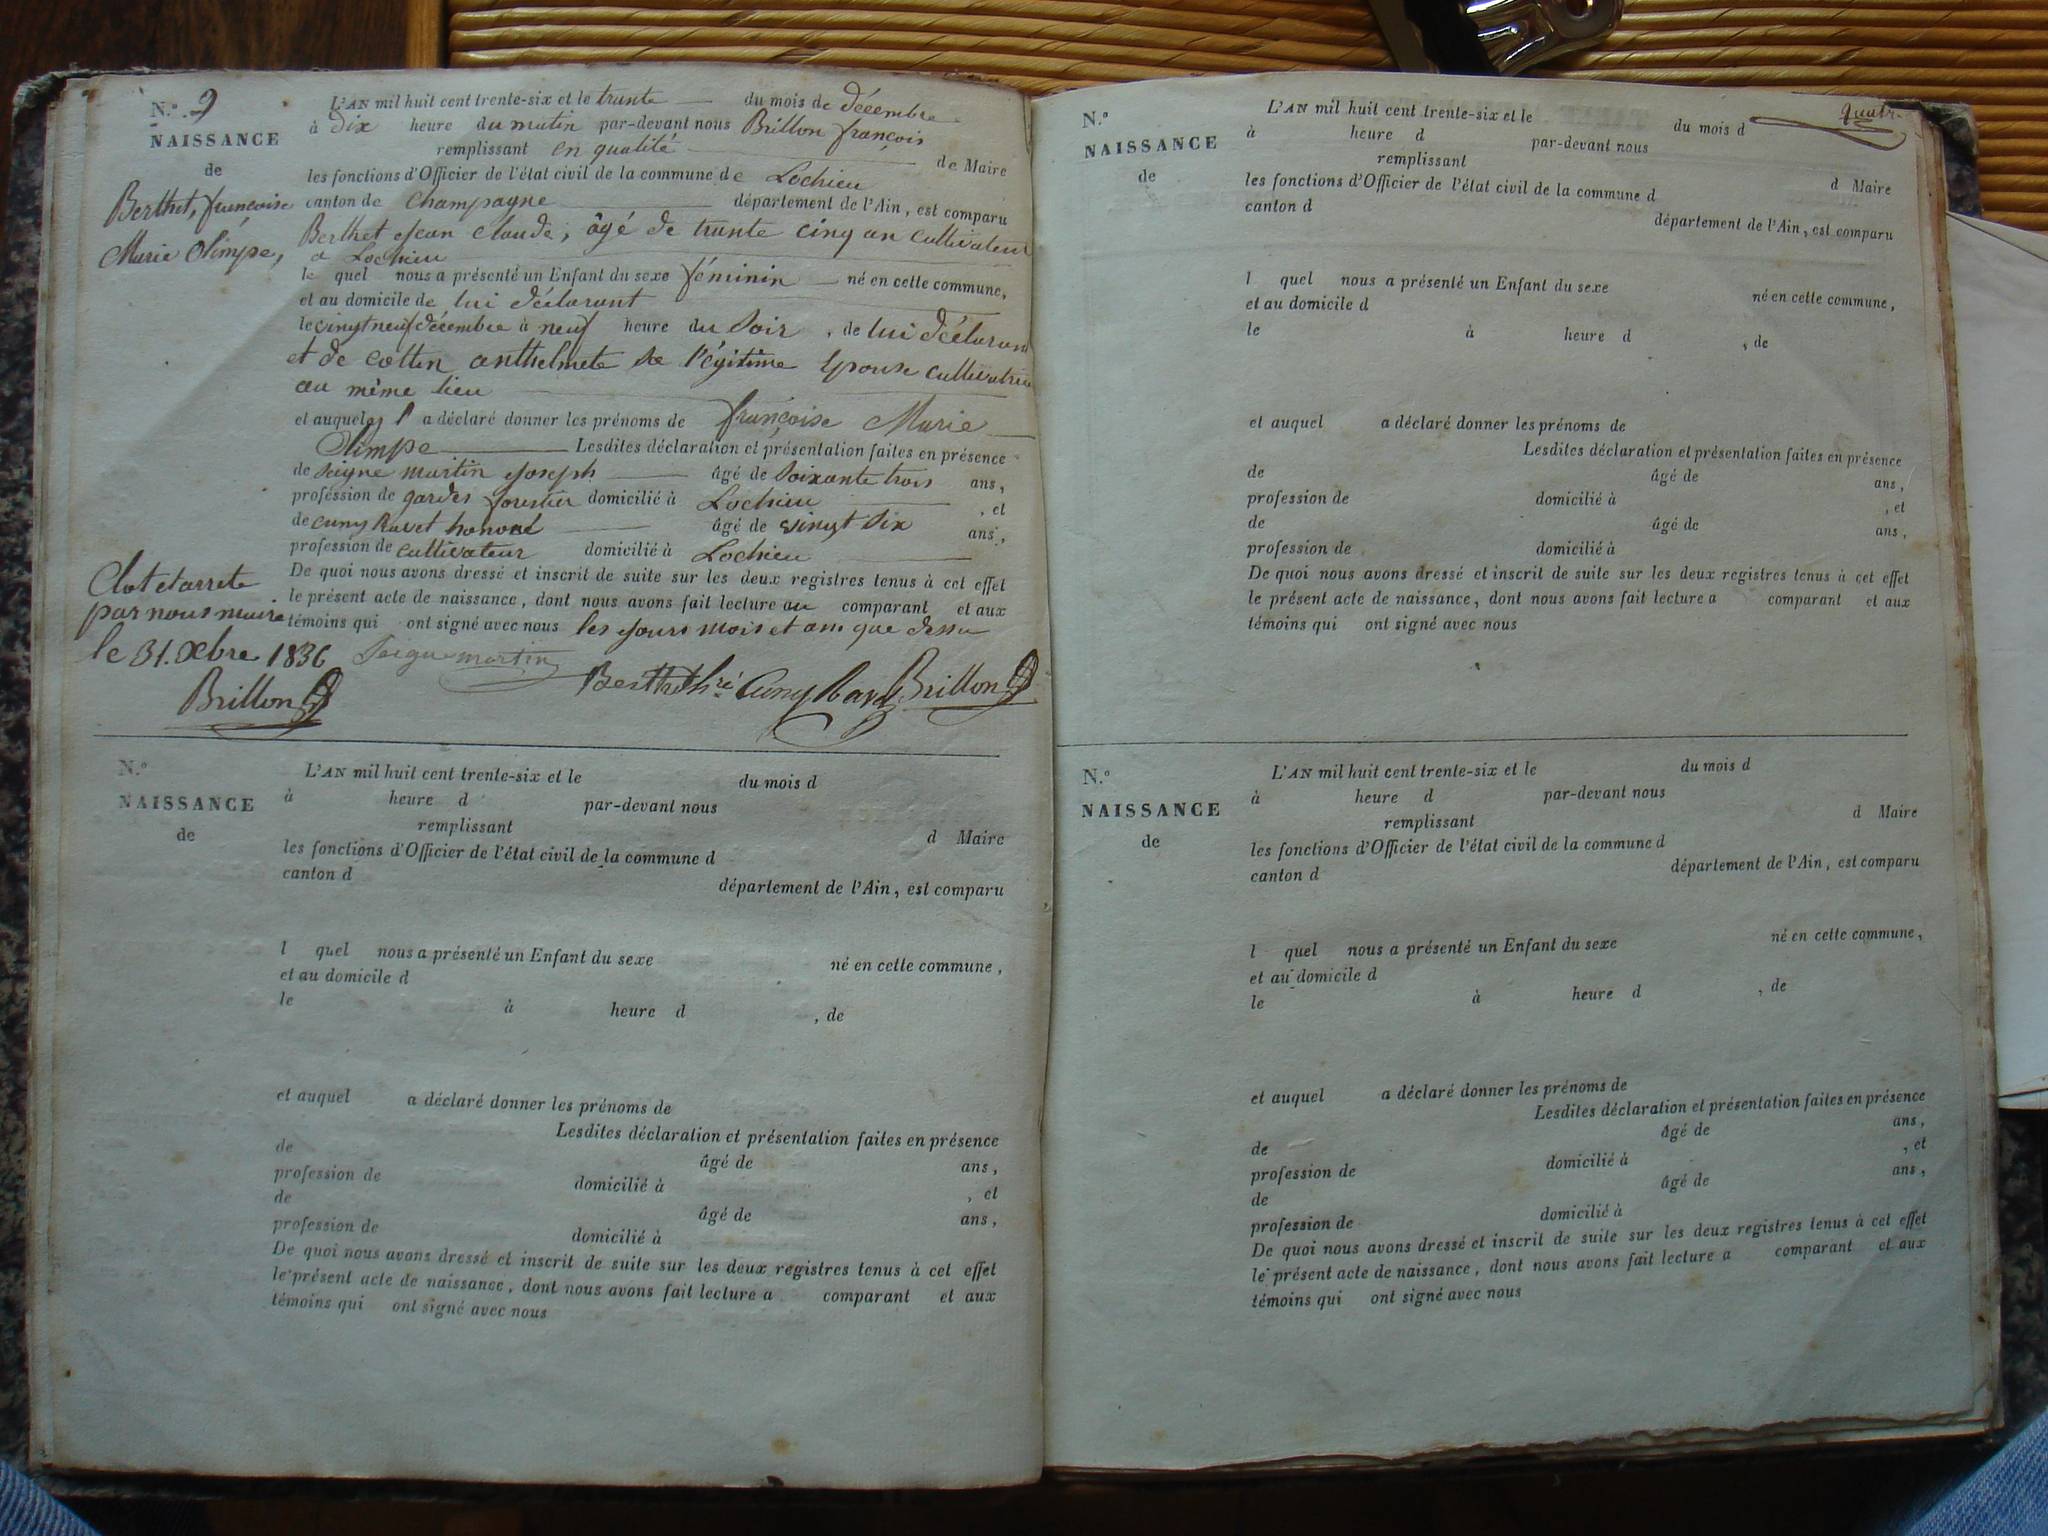 N.o 9
NAISSANCE
de
Berthet, françoise
Marie Olimpe,
L'AN mil huit cent trente-six et le trente du mois de décembre
à dix heure du matin par-devant nous Brillon françois
remplissant en qualité de Maire
les fonctions d'Officier de l'état civil de la commune de Lochieu
canton de Champagne département de l'Ain, est comparu
Berthet Jean Claude, âgé de trente cinq an cultivateur
a Lochieu
le quel nous a présenté un Enfant du sexe féminin né en cette commune,
et au domicile de lui déclarant
le vingt neuf décembre à neuf heure du Soir, de lui déclarant
et de cottin anthelmete sa légitime Epouse cultivatrice
au même lieu
et auquel il a déclaré donner les prénoms de françoise Marie
Olimpe Lesdites déclaration et présentation faites en présence
de Seigne martin Joseph âgé de Soixante trois ans,
profession de gardes forestier domicilié à Lochieu, et
de Cuny Ravet honoré âgé de vingt Six ans,
profession de cultivateur domicilié à Lochieu
De quoi nous avons dressé et inscrit de suite sur les deux registres tenus à cet effet
le présent acte de naissance, dont nous avons fait lecture au comparant et aux
témoins qui ont signé avec nous les jours mois et an que dessu
Clot et arrete
par nous maire
le 31. Xbre 1836
Brillon
Seigne martin
Berthet Cuny Ravet Brillon
N.o
NAISSANCE
de
L'AN mil huit cent trente-six et le du mois d
à heure d par-devant nous
remplissant d Maire
les fonctions d'Officier de l'état civil de la commune d
canton d département de l'Ain, est comparu
l quel nous a présenté un Enfant du sexe né en cette commune,
et au domicile d
le à heure d , de
et auquel a déclaré donner les prénoms de
Lesdites déclaration et présentation faites en présence
de âgé de ans,
profession de domicilié à , et
de âgé de ans,
profession de domicilié à
De quoi nous avons dressé et inscrit de suite sur les deux registres tenus à cet effet
le présent acte de naissance, dont nous avons fait lecture a comparant et aux
témoins qui ont signé avec nous
quatre
N.o
NAISSANCE
de
L'AN mil huit cent trente-six et le du mois d
à heure d par-devant nous
remplissant d Maire
les fonctions d'Officier de l'état civil de la commune d
canton d département de l'Ain, est comparu
l quel nous a présenté un Enfant du sexe né en cette commune,
et au domicile d
le à heure d , de
et auquel a déclaré donner les prénoms de
Lesdites déclaration et présentation faites en présence
de âgé de ans,
profession de domicilié à , et
de âgé de ans,
profession de domicilié à
De quoi nous avons dressé et inscrit de suite sur les deux registres tenus à cet effet
le présent acte de naissance, dont nous avons fait lecture a comparant et aux
témoins qui ont signé avec nous
N.o
NAISSANCE
de
L'AN mil huit cent trente-six et le du mois d
à heure d par-devant nous
remplissant d Maire
les fonctions d'Officier de l'état civil de la commune d
canton d département de l'Ain, est comparu
l quel nous a présenté un Enfant du sexe né en cette commune,
et au domicile d
le à heure d , de
et auquel a déclaré donner les prénoms de
Lesdites déclaration et présentation faites en présence
de âgé de ans,
profession de domicilié à , et
de âgé de ans,
profession de domicilié à
De quoi nous avons dressé et inscrit de suite sur les deux registres tenus à cet effet
le présent acte de naissance, dont nous avons fait lecture a comparant et aux
témoins qui ont signé avec nous